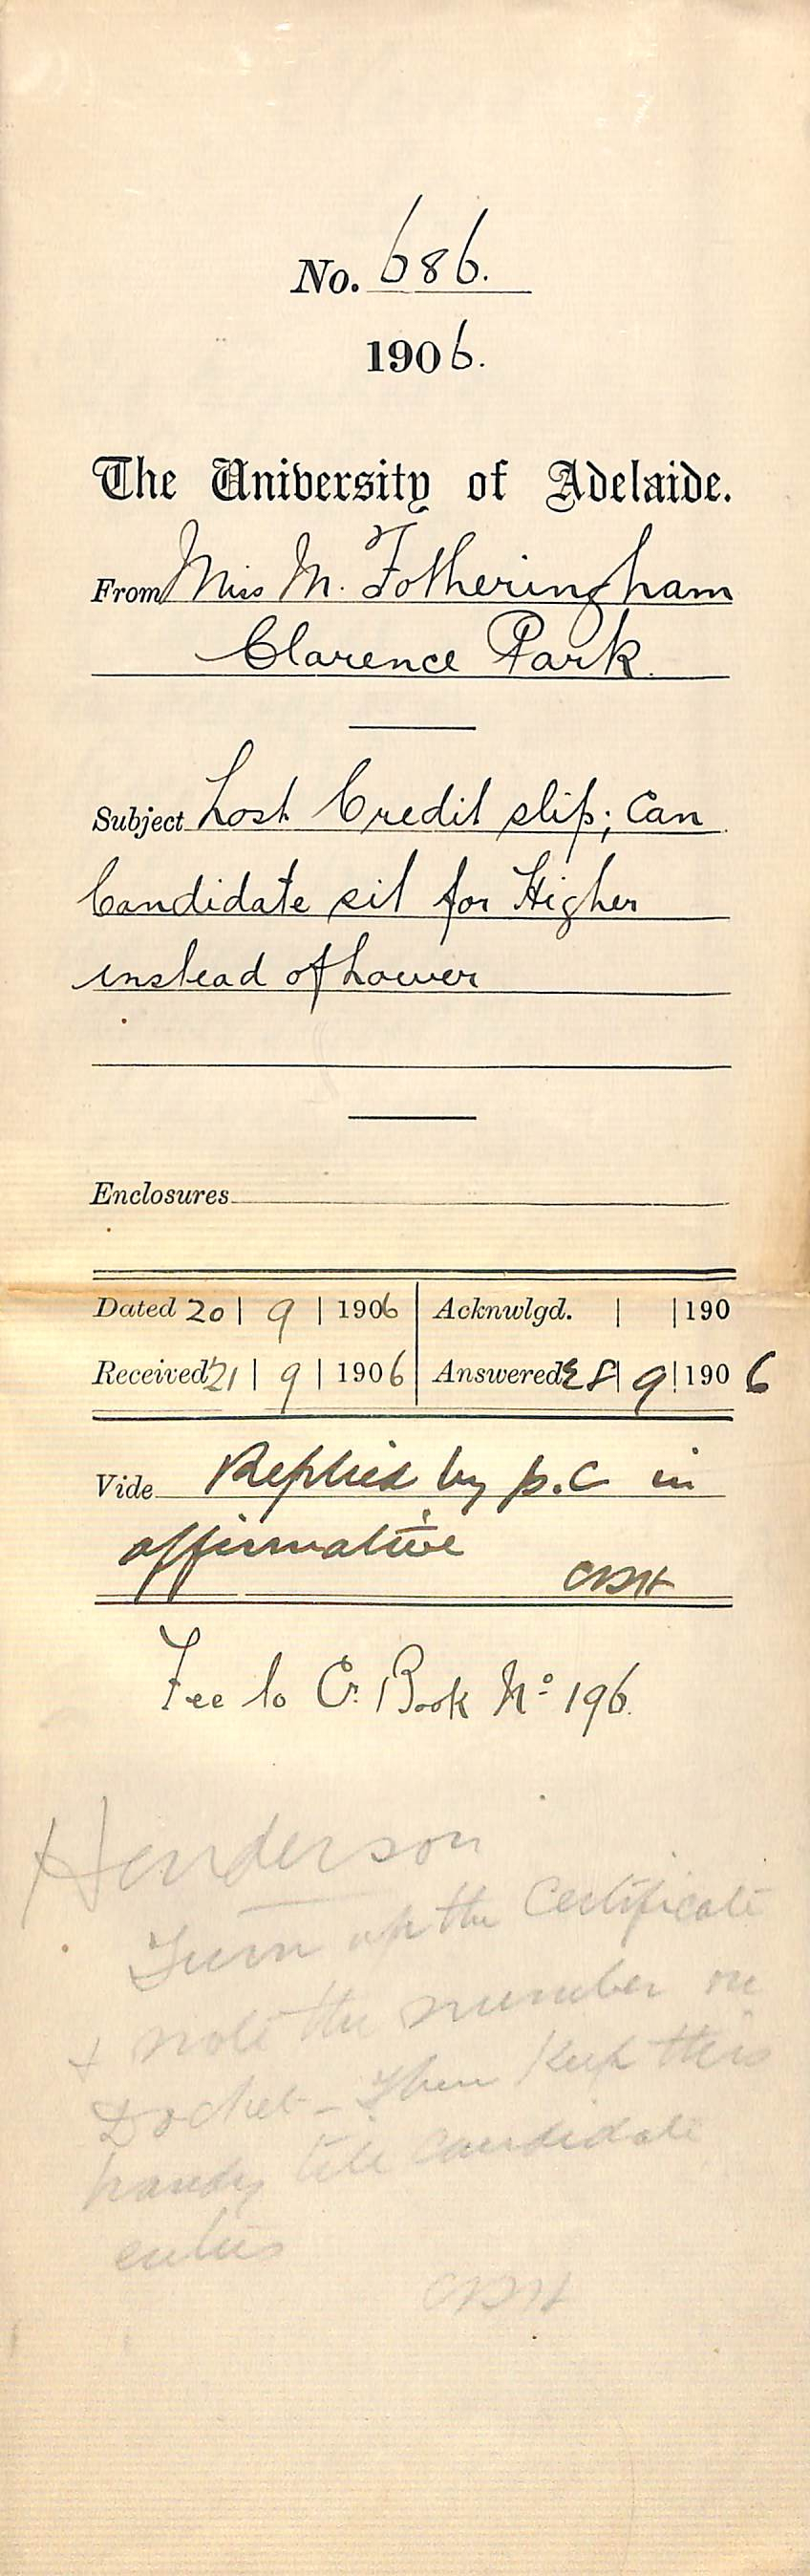 No. 686.
1906.
The University of Adelaide.
From Miss M. Fotheringham
Clarence Park.
Subject Lost Credit slip; Can
Candidate sit for Higher
instead of Lower
Enclosures
Dated 20 | 9 | 1906 Acknwlgd. | | 190
Received 21 | 9 | 1906 Answered 28 | 9 | 1906
Vide Replied by p.c in
affirmative
CRH
Fee to Cr. Book No 196.
Henderson
Turn up the Certificate
+ note the number on
Docket - Then Keep this
handy till candidate
enters
CRH